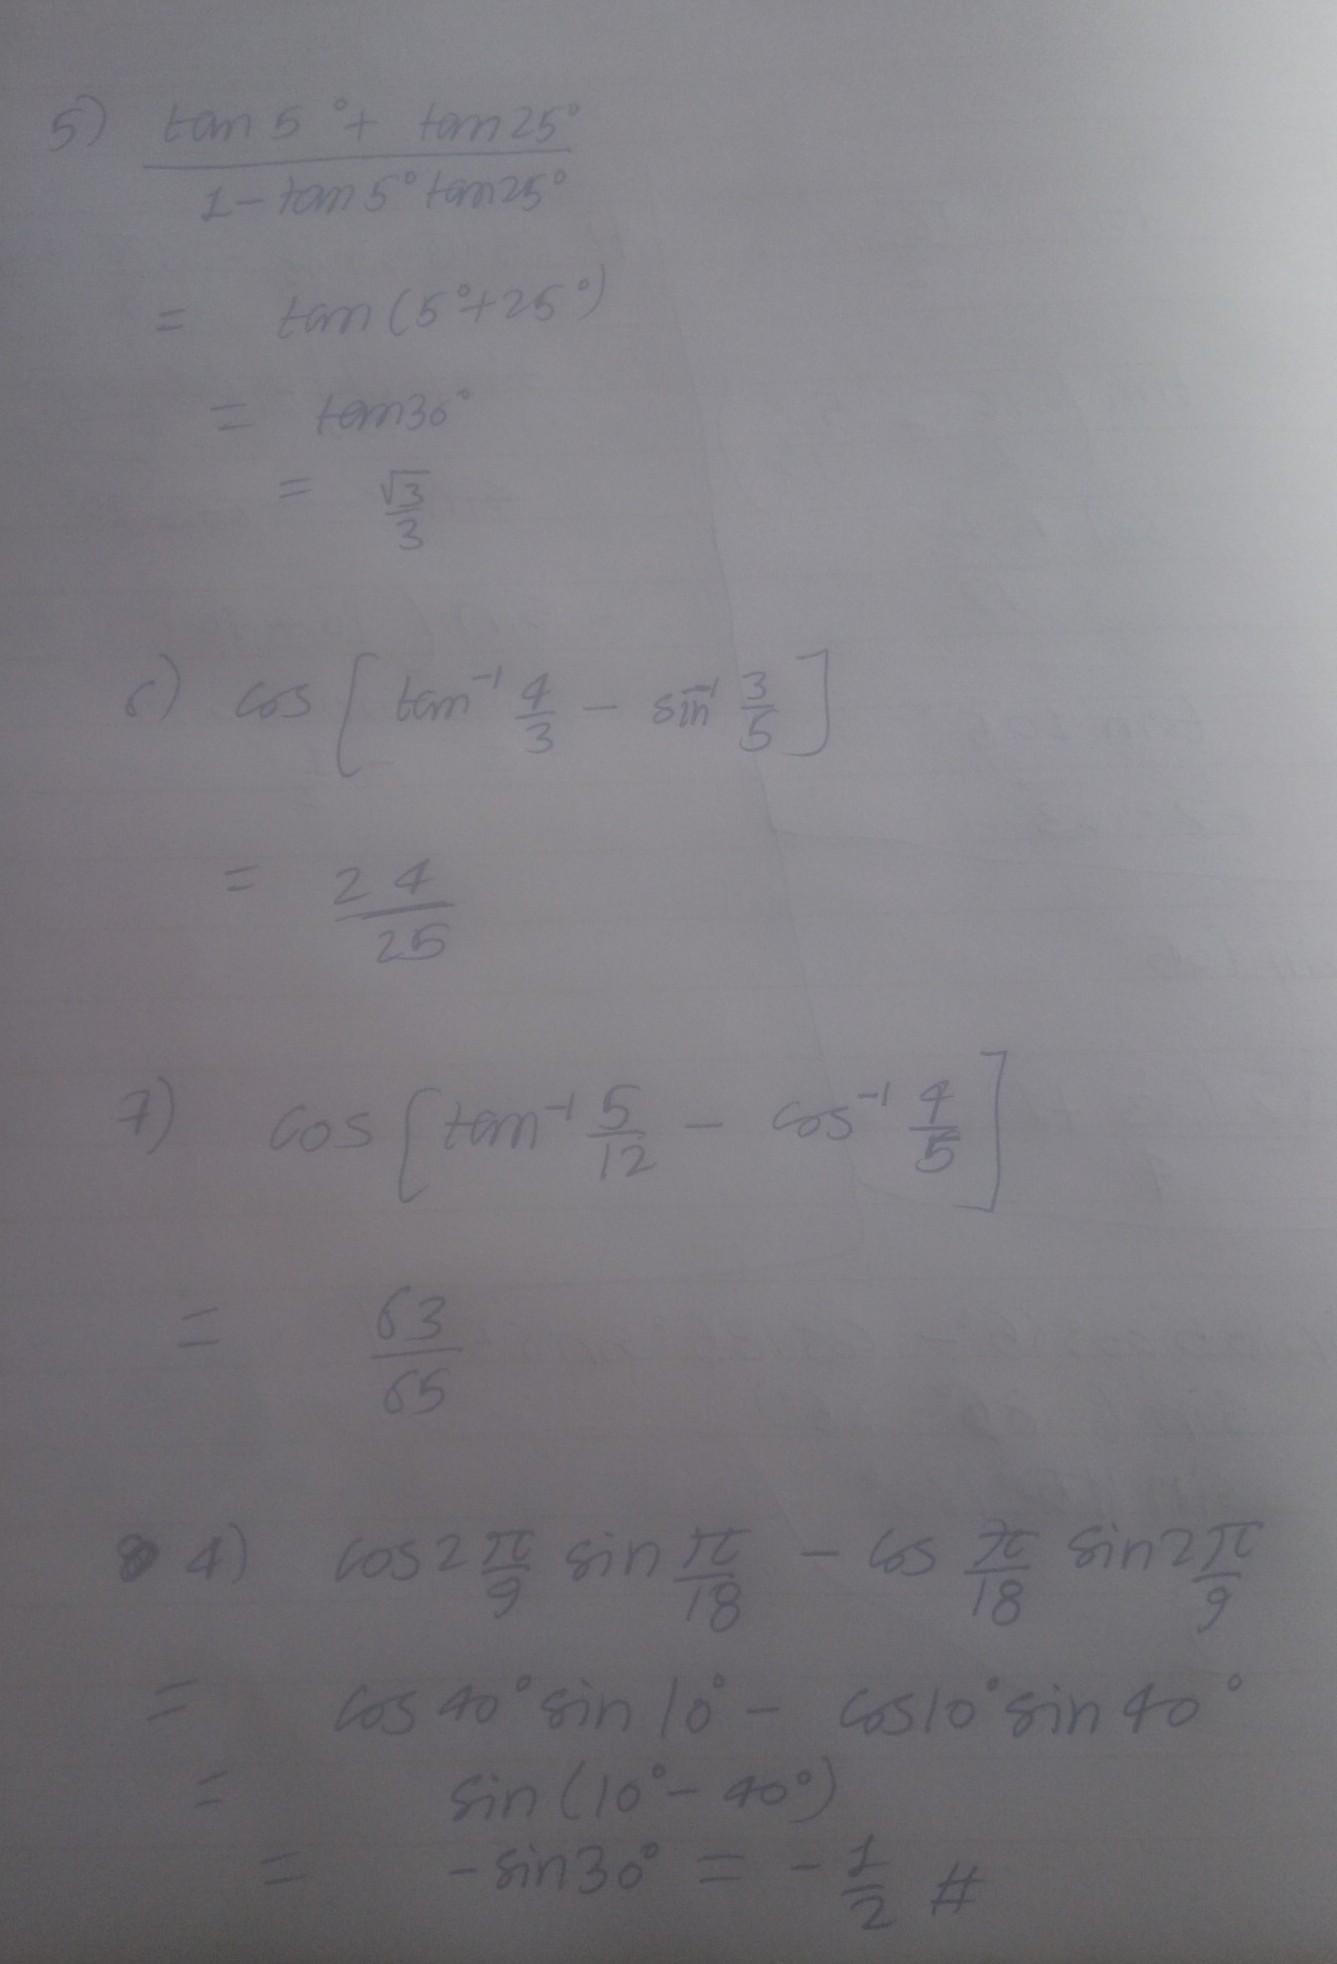 5) tan 5° + tan 25°
1 - tan 5° tan 25°
= tan (5° + 25°)
= tan 30°
= √3/3
6) cos [ tan⁻¹ 4/3 - sin⁻¹ 3/5 ]
= 24/25
7) cos [ tan⁻¹ 5/12 - cos⁻¹ 4/5 ]
= 63/65
4) cos 2 π/9 sin π/18 - cos π/18 sin 2 π/9
= cos 40° sin 10° - cos 10° sin 40°
= sin (10° - 40°)
= - sin 30° = - 1/2 #